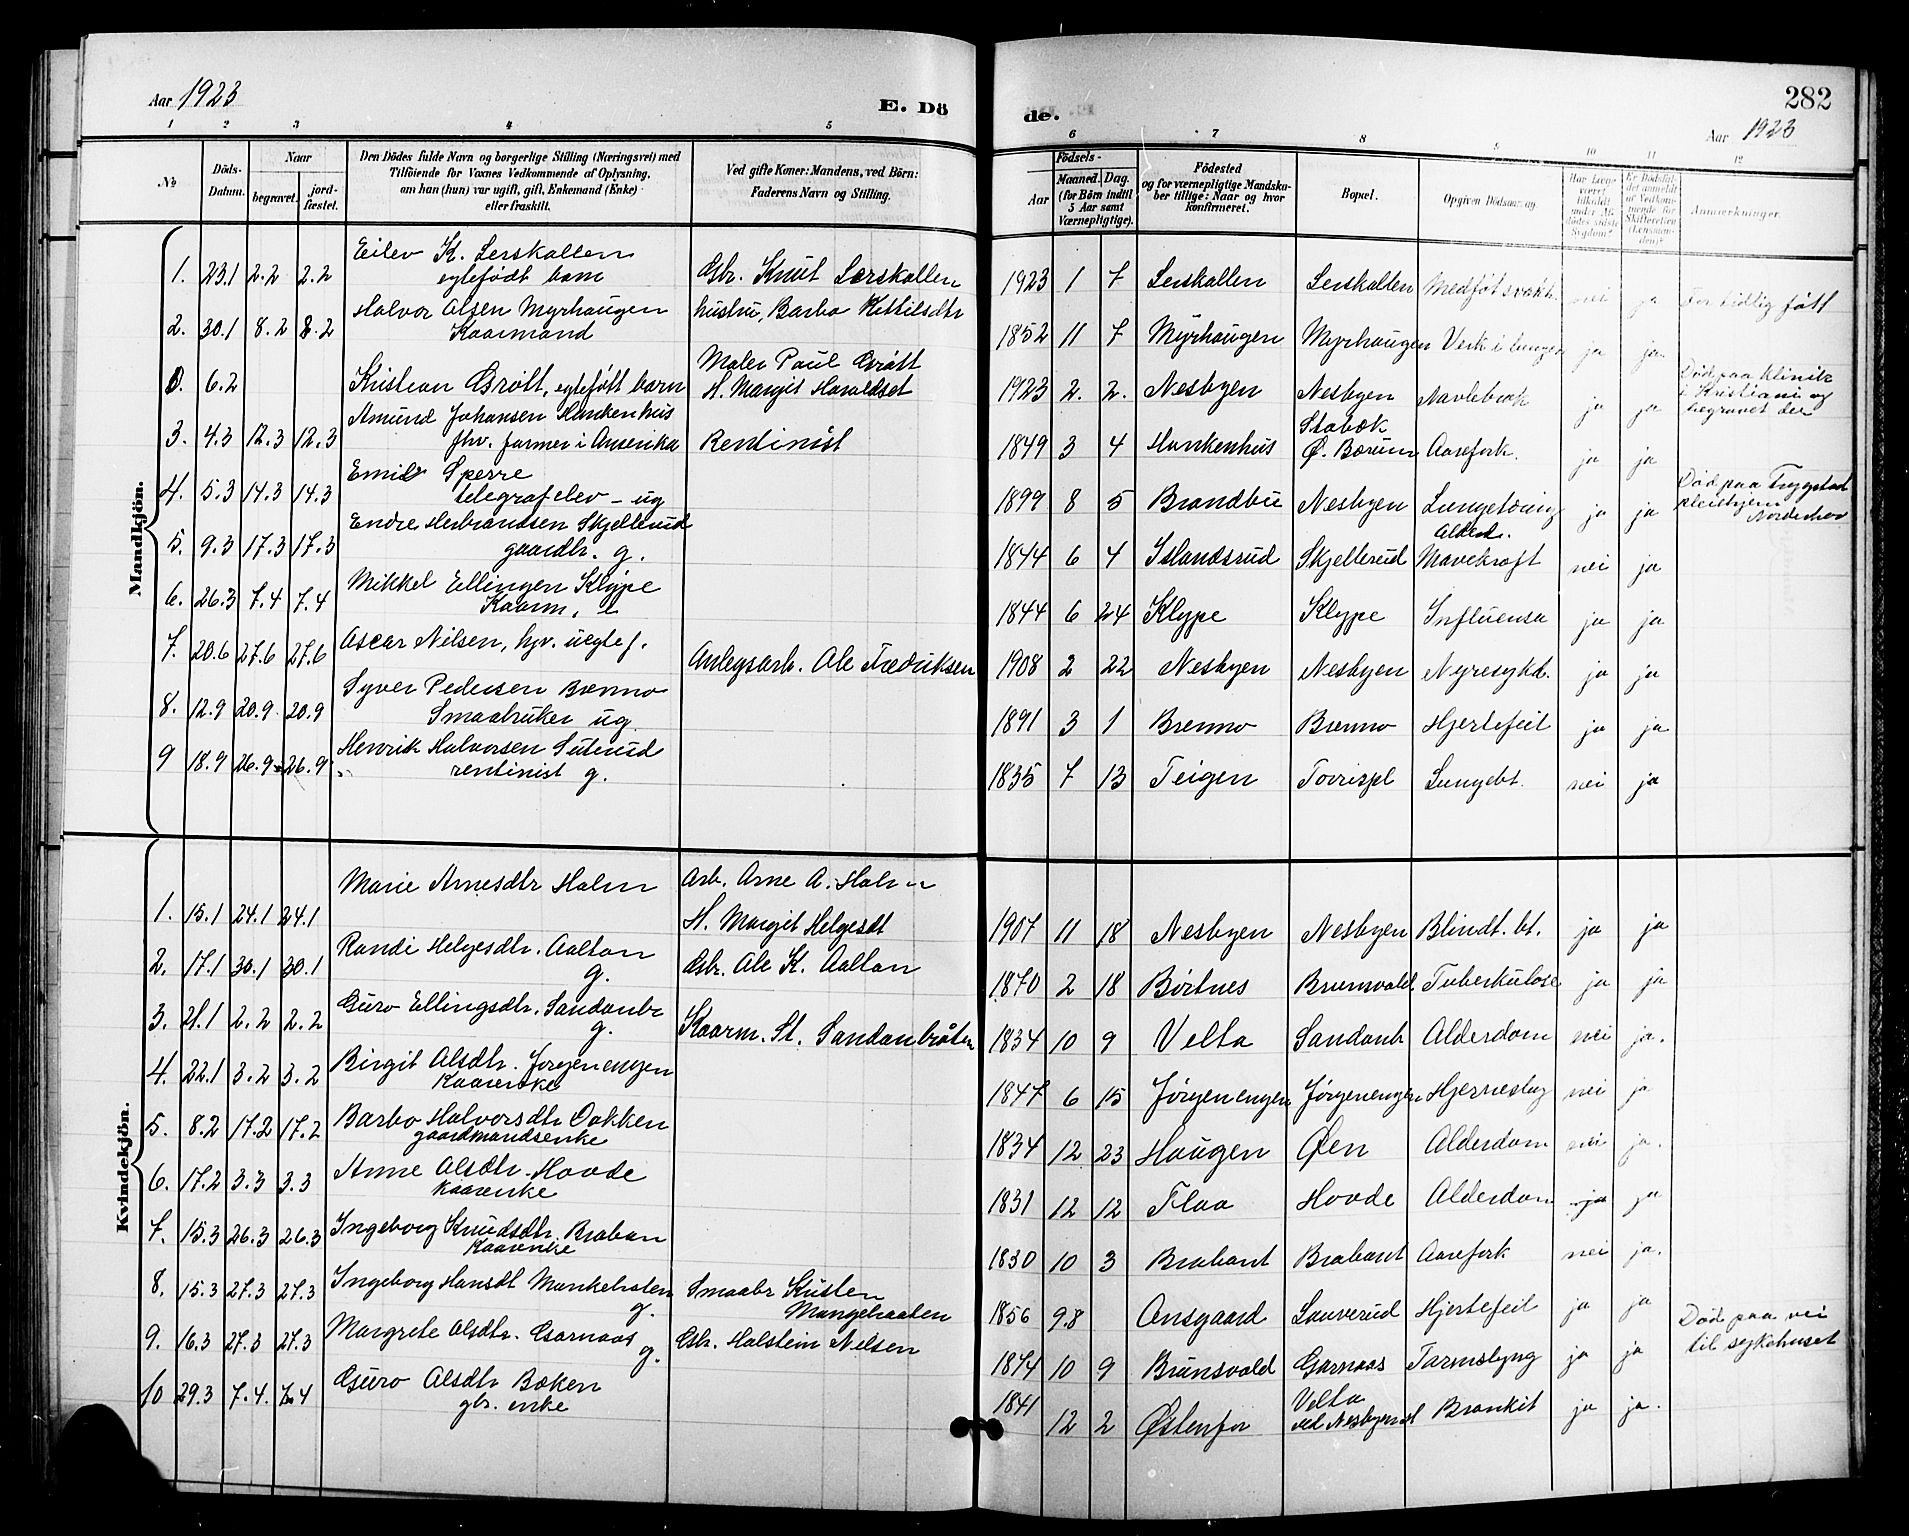 Aar 1923
E. Dö
de.
282
Aar 1923
1 2 3 4 5
6 7 8 9 10 11 12
No
Döds-Datum.
Naar
begravet.
jordfæstet.
Den Dödes fulde Navn og borgerlige Stilling (Næringsvei) med
Tilföiende for Voxnes Vedkommende af Oplysning,
om han (hun) var ugift, gift, Enkemand (Enke)
eller fraskilt.
Ved gifte Koner: Mandens, ved Börn:
Faderens Navn og Stilling.
Födsels-
Aar Maaned. Dag.
(for Börn indtil
5 Aar samt
Værnepligtige).
Födested
og for værnepligtige Mandskaber
tillige: Naar og hvor
konfirmeret.
Bopæl.
Opgiven Dödsaarsag.
Har Læge
været
tilkaldt
under Afdödes
sidste
Sygdom?
Er Dödsfaldet
anmeldt
af Vedkommende
for
Skifteretten
(Lensmanden)?
Anmærkninger.
Mandkjön.
1. 23.1 2.2 2.2 Eilev K. Lerskallen
egtefödt barn Gbr. Knut Lerskallen 1923 1 7 Lerskallen Lerskallen Medföt svakh. nei ja For tidlig fött
2. 30.1 8.2 8.2 Halvor Olsen Myrhaugen
Kaarmand hustru, Barbo Kittilsdtr 1852 11 7 Myrhaugen Myrhaugen Verk i lungen ja ja
0. 6.2 Kristian Grött, egtefött barn Maler Paul Grött
H. Margit Haraldset 1923 2. 2. Nesbyen Nesbyen Navlebrok ja ja Död paa klinik
i Kristiania og
begravet der
3. 4.3 12.3 12.3 Amund Johansen Hankenhus
fhv. farmer i Amerika Rentinist 1849 3 4 Hankenhus Stabæk
Ø. Bærum Aarefork. ja ja
4. 5.3 14.3 14.3 Emil Sperre
telegrafelev - ug 1899 8 5 Brandbu Nesbyen Lungetæring ja ja Död paa Tryggstad
pleiehjem
Norderhov
5. 9.3 17.3 17.3 Endre Herbrandsen Skjellerud
gaardbr. g. 1844 6 4 Islandsrud Skjellerud Alderd.
Mavekraft nei ja
6. 26.3 7.4 7.4 Mikkel Ellingsen Klype
Kaarm. 1844 6 24 Klype Klype Influensa ja ja
7. 20.6 27.6 27.6 Oscar Nilsen, hjv. uegtef. Anlegsarb. Ole Fredriksen 1908 2 22 Nesbyen Nesbyen Nyresykd. ja ja
8. 12.9 20.9 20.9 Syver Pedersen Brenno
Smaabruker ug. 1891 3 1 Brenno Brenno Hjertefeil ja ja
9 18.9 26.9 26.9 Henrik Halvorsen
rentinist g. 1835 7 13 Teigen Lungebt. nei ja
Kvindekjön.
1. 15.1 24.1 24.1 Marie Arnesdtr Holm Arb. Arne A. Holm
H. Margit Helgesdt 1907 11 18 Nesbyen Nesbyen Blindt. bt. ja ja
2. 17.1 30.1 30.1 Randi Helgesdtr. Aaltan
g. Gbr. Ole K. Aaltan 1870 2 18 Börtnes Brunsvold. Tuberkulose ja ja
3. 21.1 2.2 2.2 Guro Ellingsdtr. Sandanbr
g. Kaarm. St. Sandanbråten 1834 10 9 Velta Sandanb Alderdom nei ja.
4. 22.1 3.2 3.2 Birgit Olsdtr. Jørgenengen
Kaarenke 1847 6 15 Jørgenengen Jørgenengen Hjerneslag nei ja
5. 8.2 17.2 17.2 Barbo Halvorsdtr Dokken
gaardmandsenke 1834 12 23 Haugen Øen Alderdom nei ja.
6. 17.2 3.3 3.3 Anne Olsdtr. Hovde
Kaarenke 1831 12 12 Flaa Hovde Alderdom ja ja
7. 15.3 26.3 26.3 Ingeborg Knudsdtr. Braban
Kaarenke 1830 10 3 Brabant Brabant Aarefork nei ja.
8. 15.3 27.3 27.3 Ingeborg Hansdt Mankelraten
g. Smaabr Kristen
Mangelraaten 1856 9.8 Ansgaard Lauverud Hjertefeil ja ja
9. 16.3 27.3 27.3 Margrete Olsdtr. Garnaas
g. Gbr. Halstein Nilsen 1874 10 9 Brunsvold Garnaas Tarmslyng ja ja Död paa vei
til sykehuset
10 29.3 7.4. 7.4 Guro Olsdtr Bæken
gbr. enke 1841 12 2 Østenfor Velta
ved Nesbyen st Bronkit ja ja.